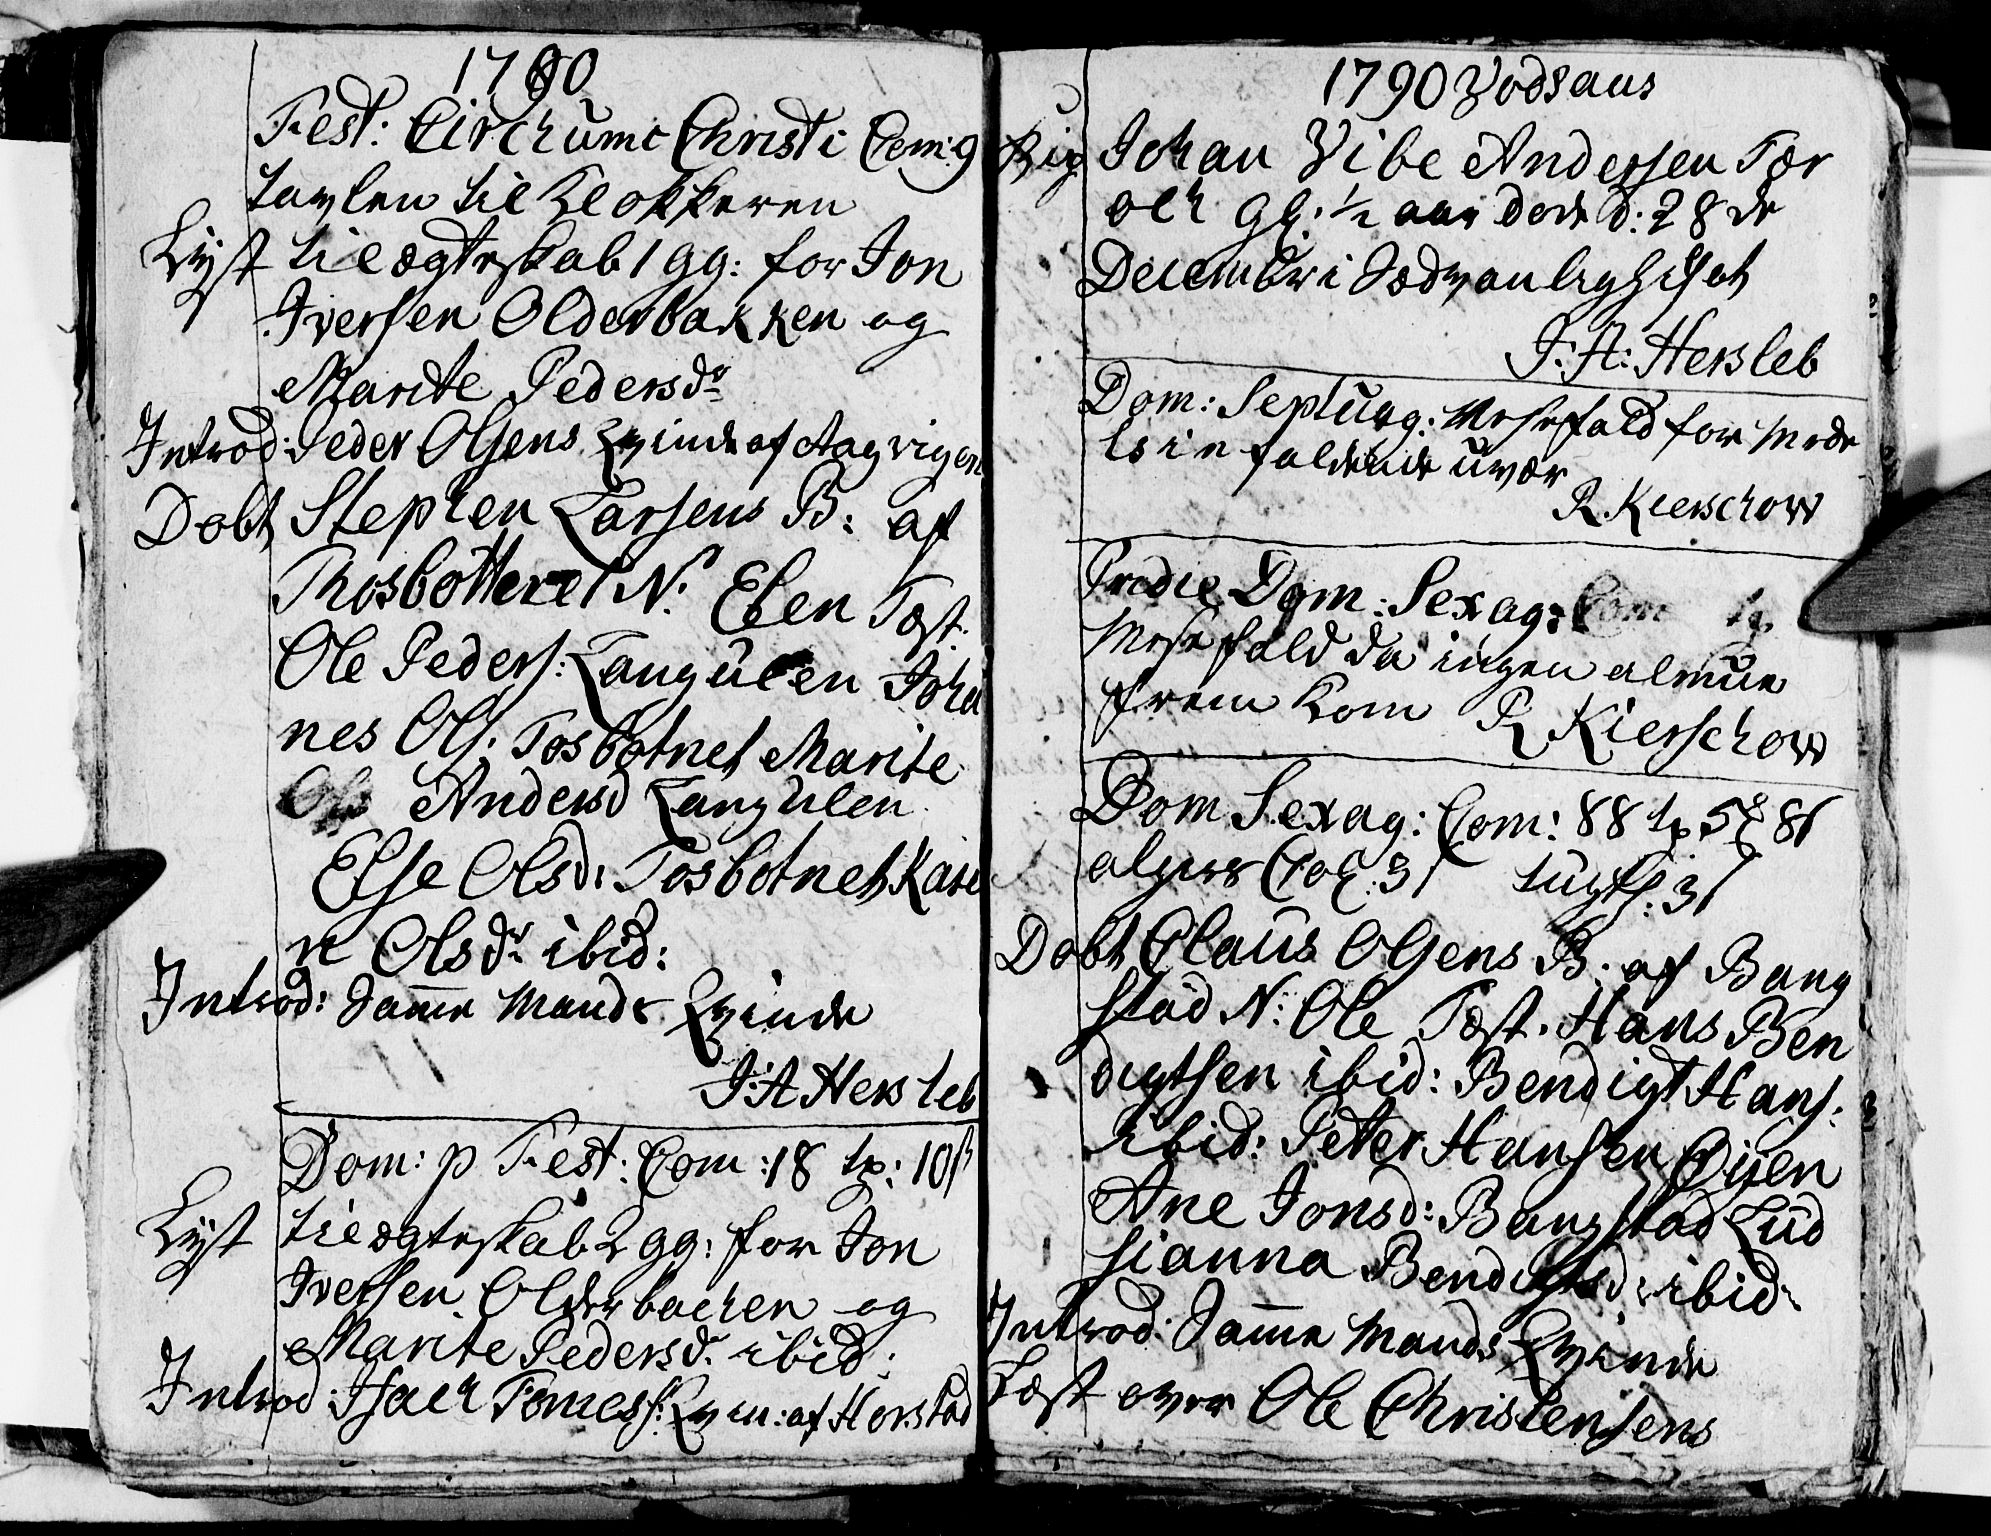 1790
Fest: Circhumc Christi Com: 9
tavlen til Klokkeren
Lyst til ægteskab 1 gg: for Jon
Iversen Olderbakken og
Marite Pedersdr
Introd: Peder Olsens Qvinde af Aagvigen
Døbt Stephen Larsens B: af
Thosbotteret N: Eben Test:
Ole Peders: Langulen Joha
nes Ols: Tosbotnet Marite
Andersd Langulen
Else Olsd: Tosbotnet Kare
n Olsdr ibid:
Introd: Samme Mands Qvinde
J:A Hersleb
Dom: p Fest: Com: 18 tp: 10ß
Lyst til ægteskab 2 gg: for Jon
Iversen Olderbachen og
Marite Pedersdr ibid:
Introd: Isach Tomess: Qvin: af Horstad
1790 Vodsaus
Johan Vibe Andersen Tor
och gl: 1/2 aar døde d: 28 de
Decembri Sædvanlig
J: A: Hersleb
Dom: Septuag: Messefald for Mede
ls in faldende uvær
R. Kierschow
Pridie Dom: Sexag: Com
Messefald da ingen almue
frem kom R. Kierschow
Dom Sexag: Com: 88 tp
tugth: 3ß
Døbt Claus Olsens B: af Bang
stad N: Ole Test. Hans Ben
digtsen ibid: Bendigt Hans:
ibid: Petter Hansen Øyen
Ane Jonsd: Bangstad Lud
sianna Bendigtsd: ibid:
Introd: Samme Mands Qvinde
Læst over Ole Christensens